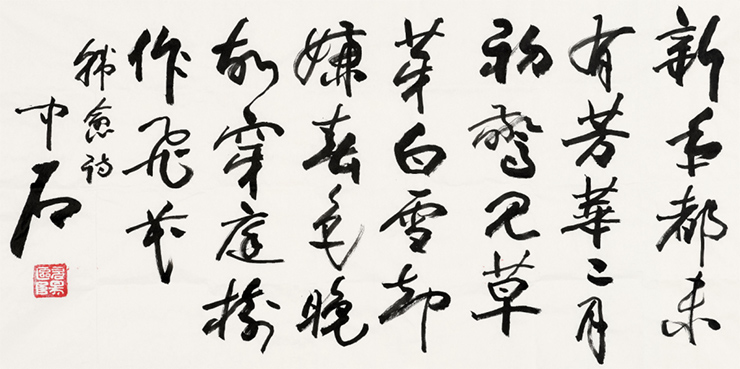 新年都未
有芳华二月
初惊见草
芽白雪却
嫌春色晚
故穿庭树
作飞花
韩愈诗
中石